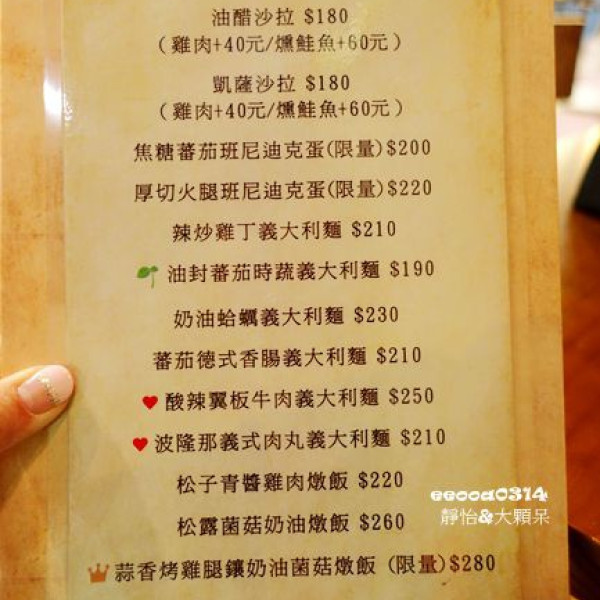 油醋沙拉 $180
(雞肉+40元/燻鮭魚+60元)
凱薩沙拉 $180
(雞肉+40元/燻鮭魚+60元)
焦糖蕃茄班尼迪克蛋(限量)$200
厚切火腿班尼迪克蛋(限量)$220
辣炒雞丁義大利麵 $210
油封蕃茄時蔬義大利麵 $190
奶油蛤蠣義大利麵 $230
蕃茄德式香腸義大利麵 $210
酸辣翼板牛肉義大利麵 $250
波隆那義式肉丸義大利麵 $210
松子青醬雞肉燉飯 $220
松露菌菇奶油燉飯 $260
蒜香烤雞腿鑲奶油菌菇燉飯 (限量)$280
靜怡&大顆呆